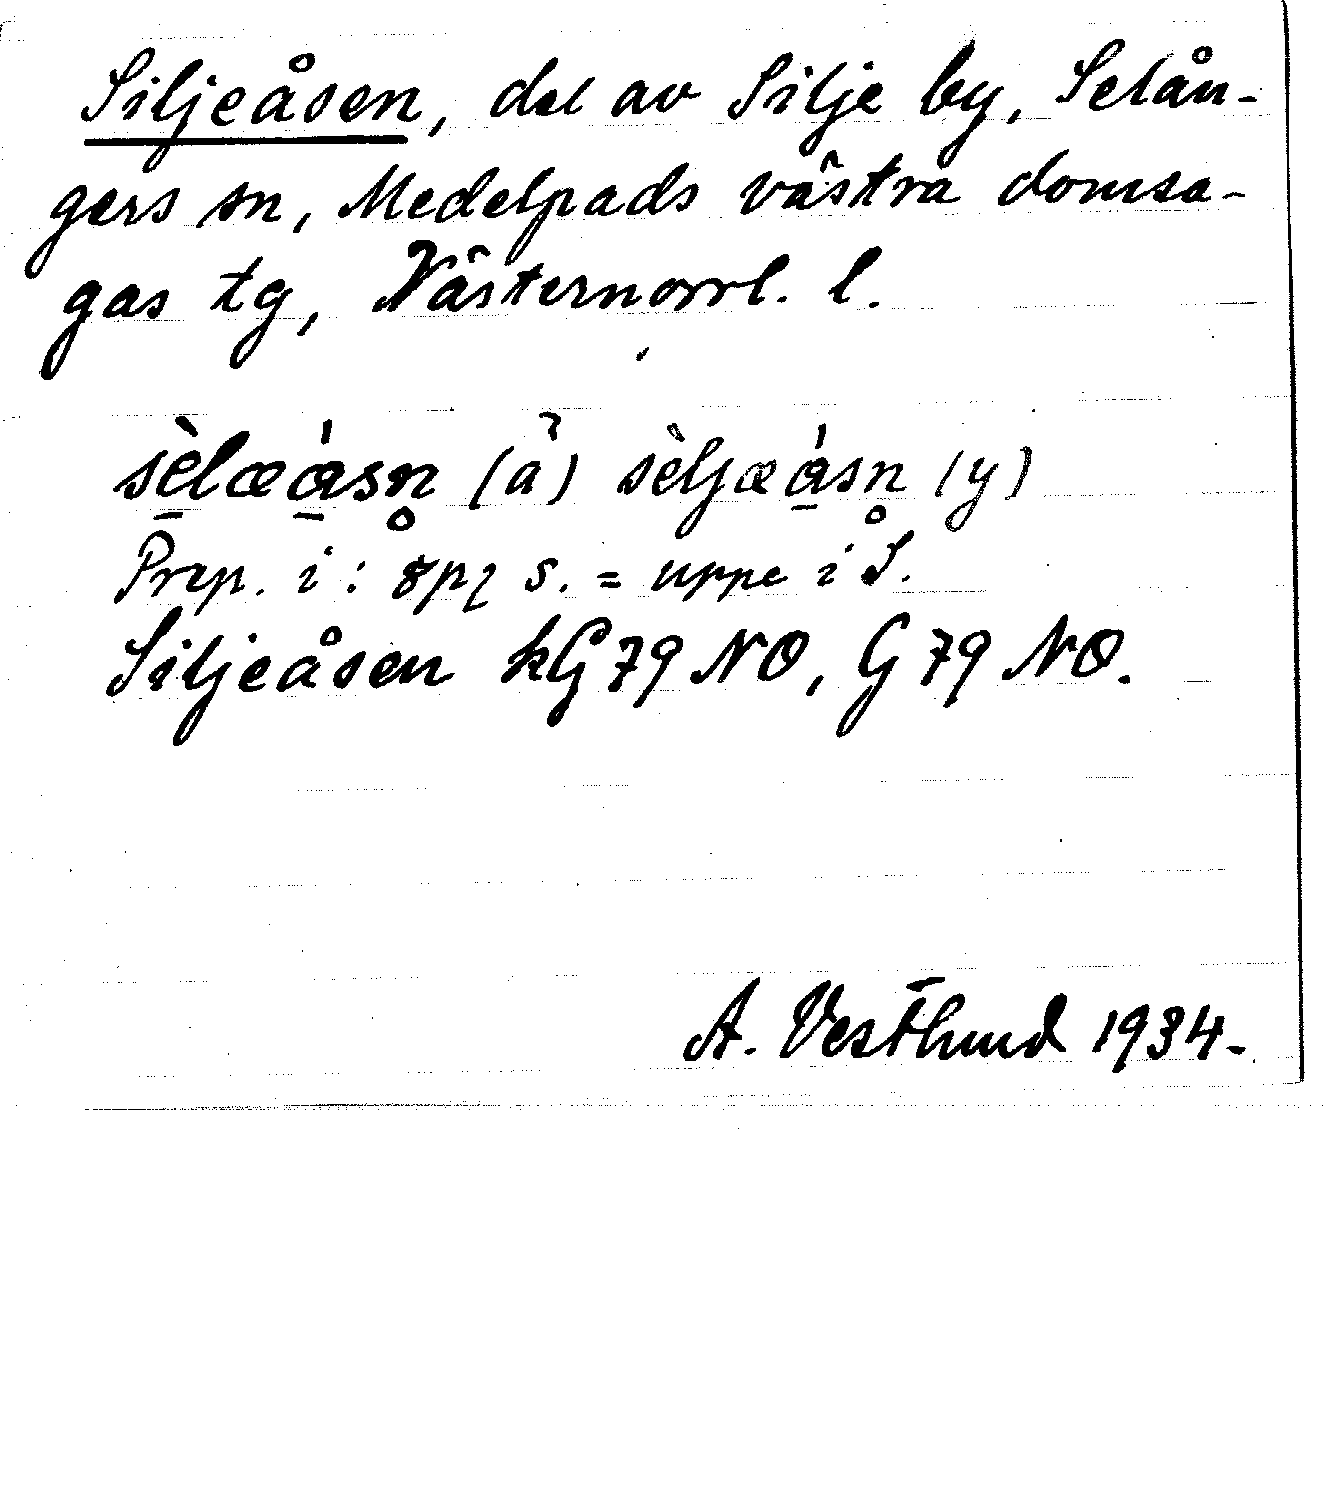 Siljeåsen, del av Silje by, Selån-
gers sn, Medelpads västra domsa-
gas tg, Västernorrl. l.
sèlæásn̥ (ä) sèljæásn̥ (y)
Prep. i: s. = uppe i S.
Siljeåsen kG 79 NO, G 79 NO.
A. Vestlund 1934.